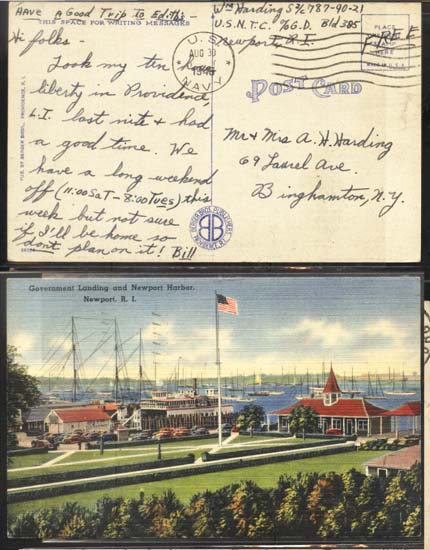 HAVE a Good Trip to Ediths -
THIS SPACE FOR WRITING MESSAGES
Hi folks -
Took my ten hour
liberty in Providence,
R.I. last nite & had
a good time. We
have a long weekend
off (11:00 SAT - 8:00 Tues) this
week but not sure
if I'll be home so
don't plan on it! Bill
PUB. BY BERGER BROS., PROVIDENCE, R. I.
Wm Harding S2/c 787-90-21
U.S.N.T.C. Bld 385
Newport, R.I.
U.S.
AUG 30
1945
NAVY
FREE
PLACE
STAMP
HERE
MADE IN U.S.A.
POST CARD
Mr & Mrs A. H. Harding
69 Laurel Ave.
Binghamton, N.Y.
BERGER BROS. PUBLISHERS
BB
PROVIDENCE, R.I.
Government Landing and Newport Harbor.
Newport, R. I.